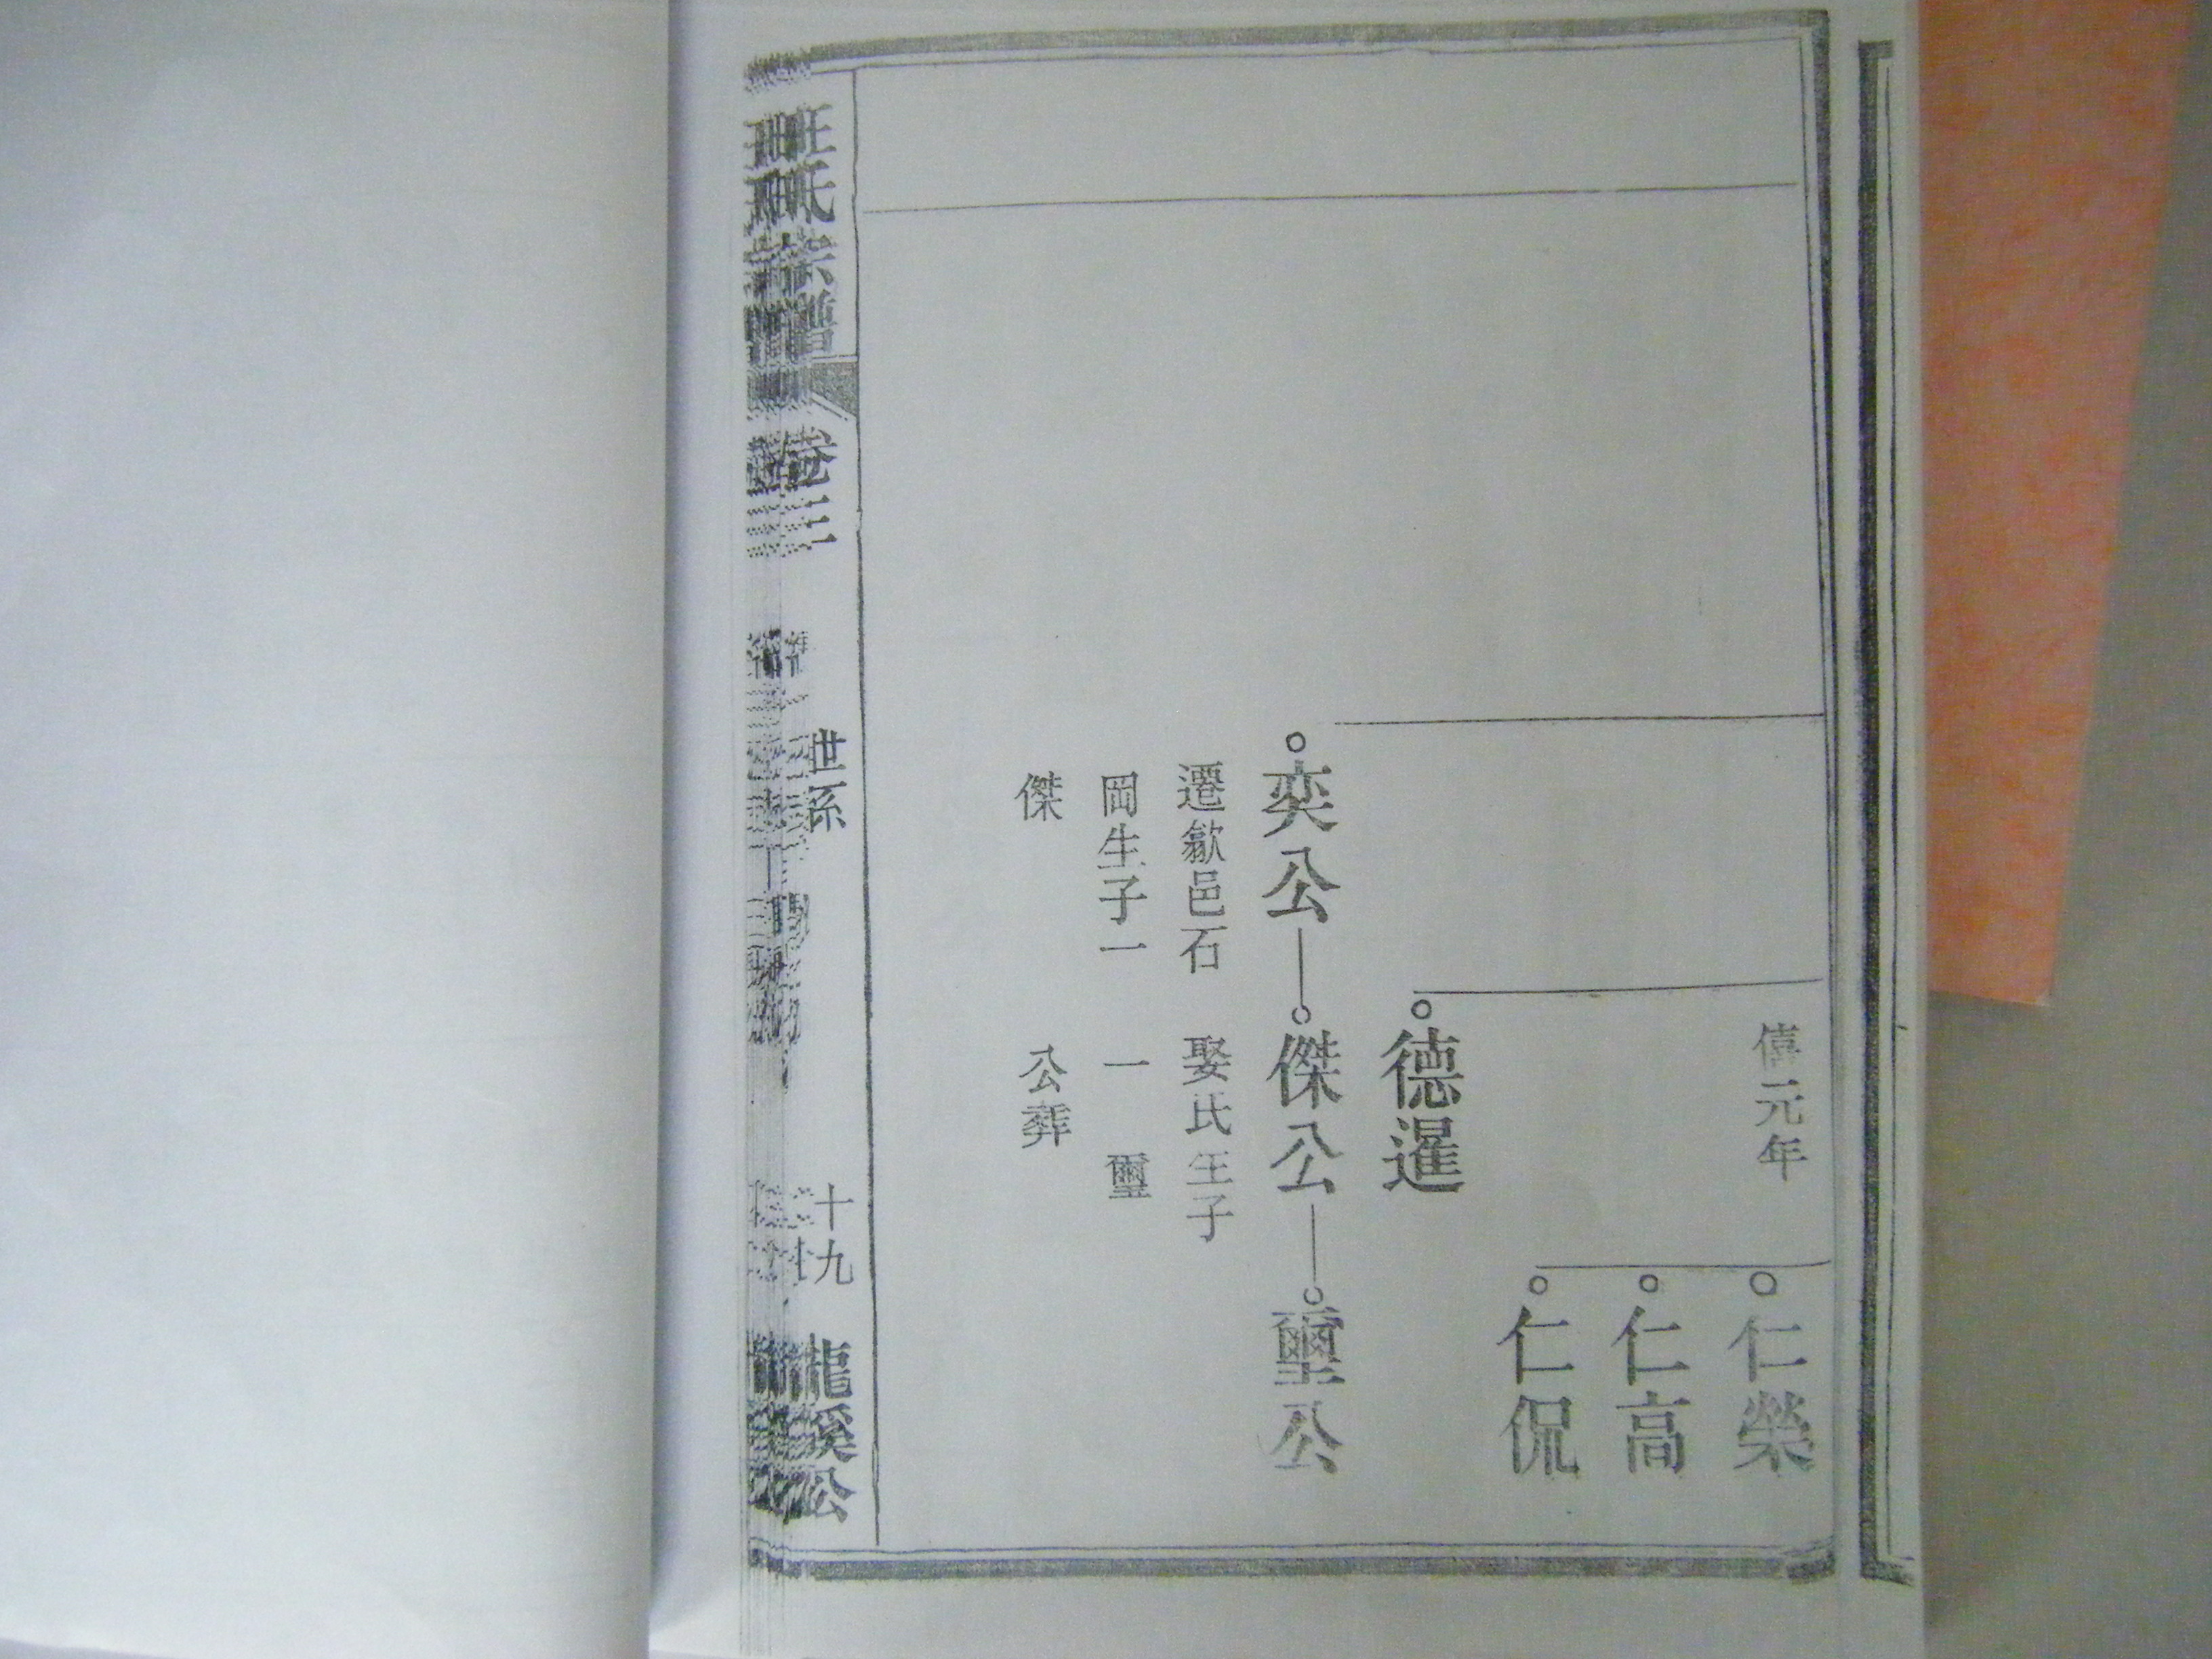 僖元年
仁榮
仁高
仁侃
德暹
奕公
傑公
璽公
遷歙邑石
岡生子一
傑
娶氏生子
一 璽
公葬
汪氏宗譜
卷三
世系
十九
龍溪公